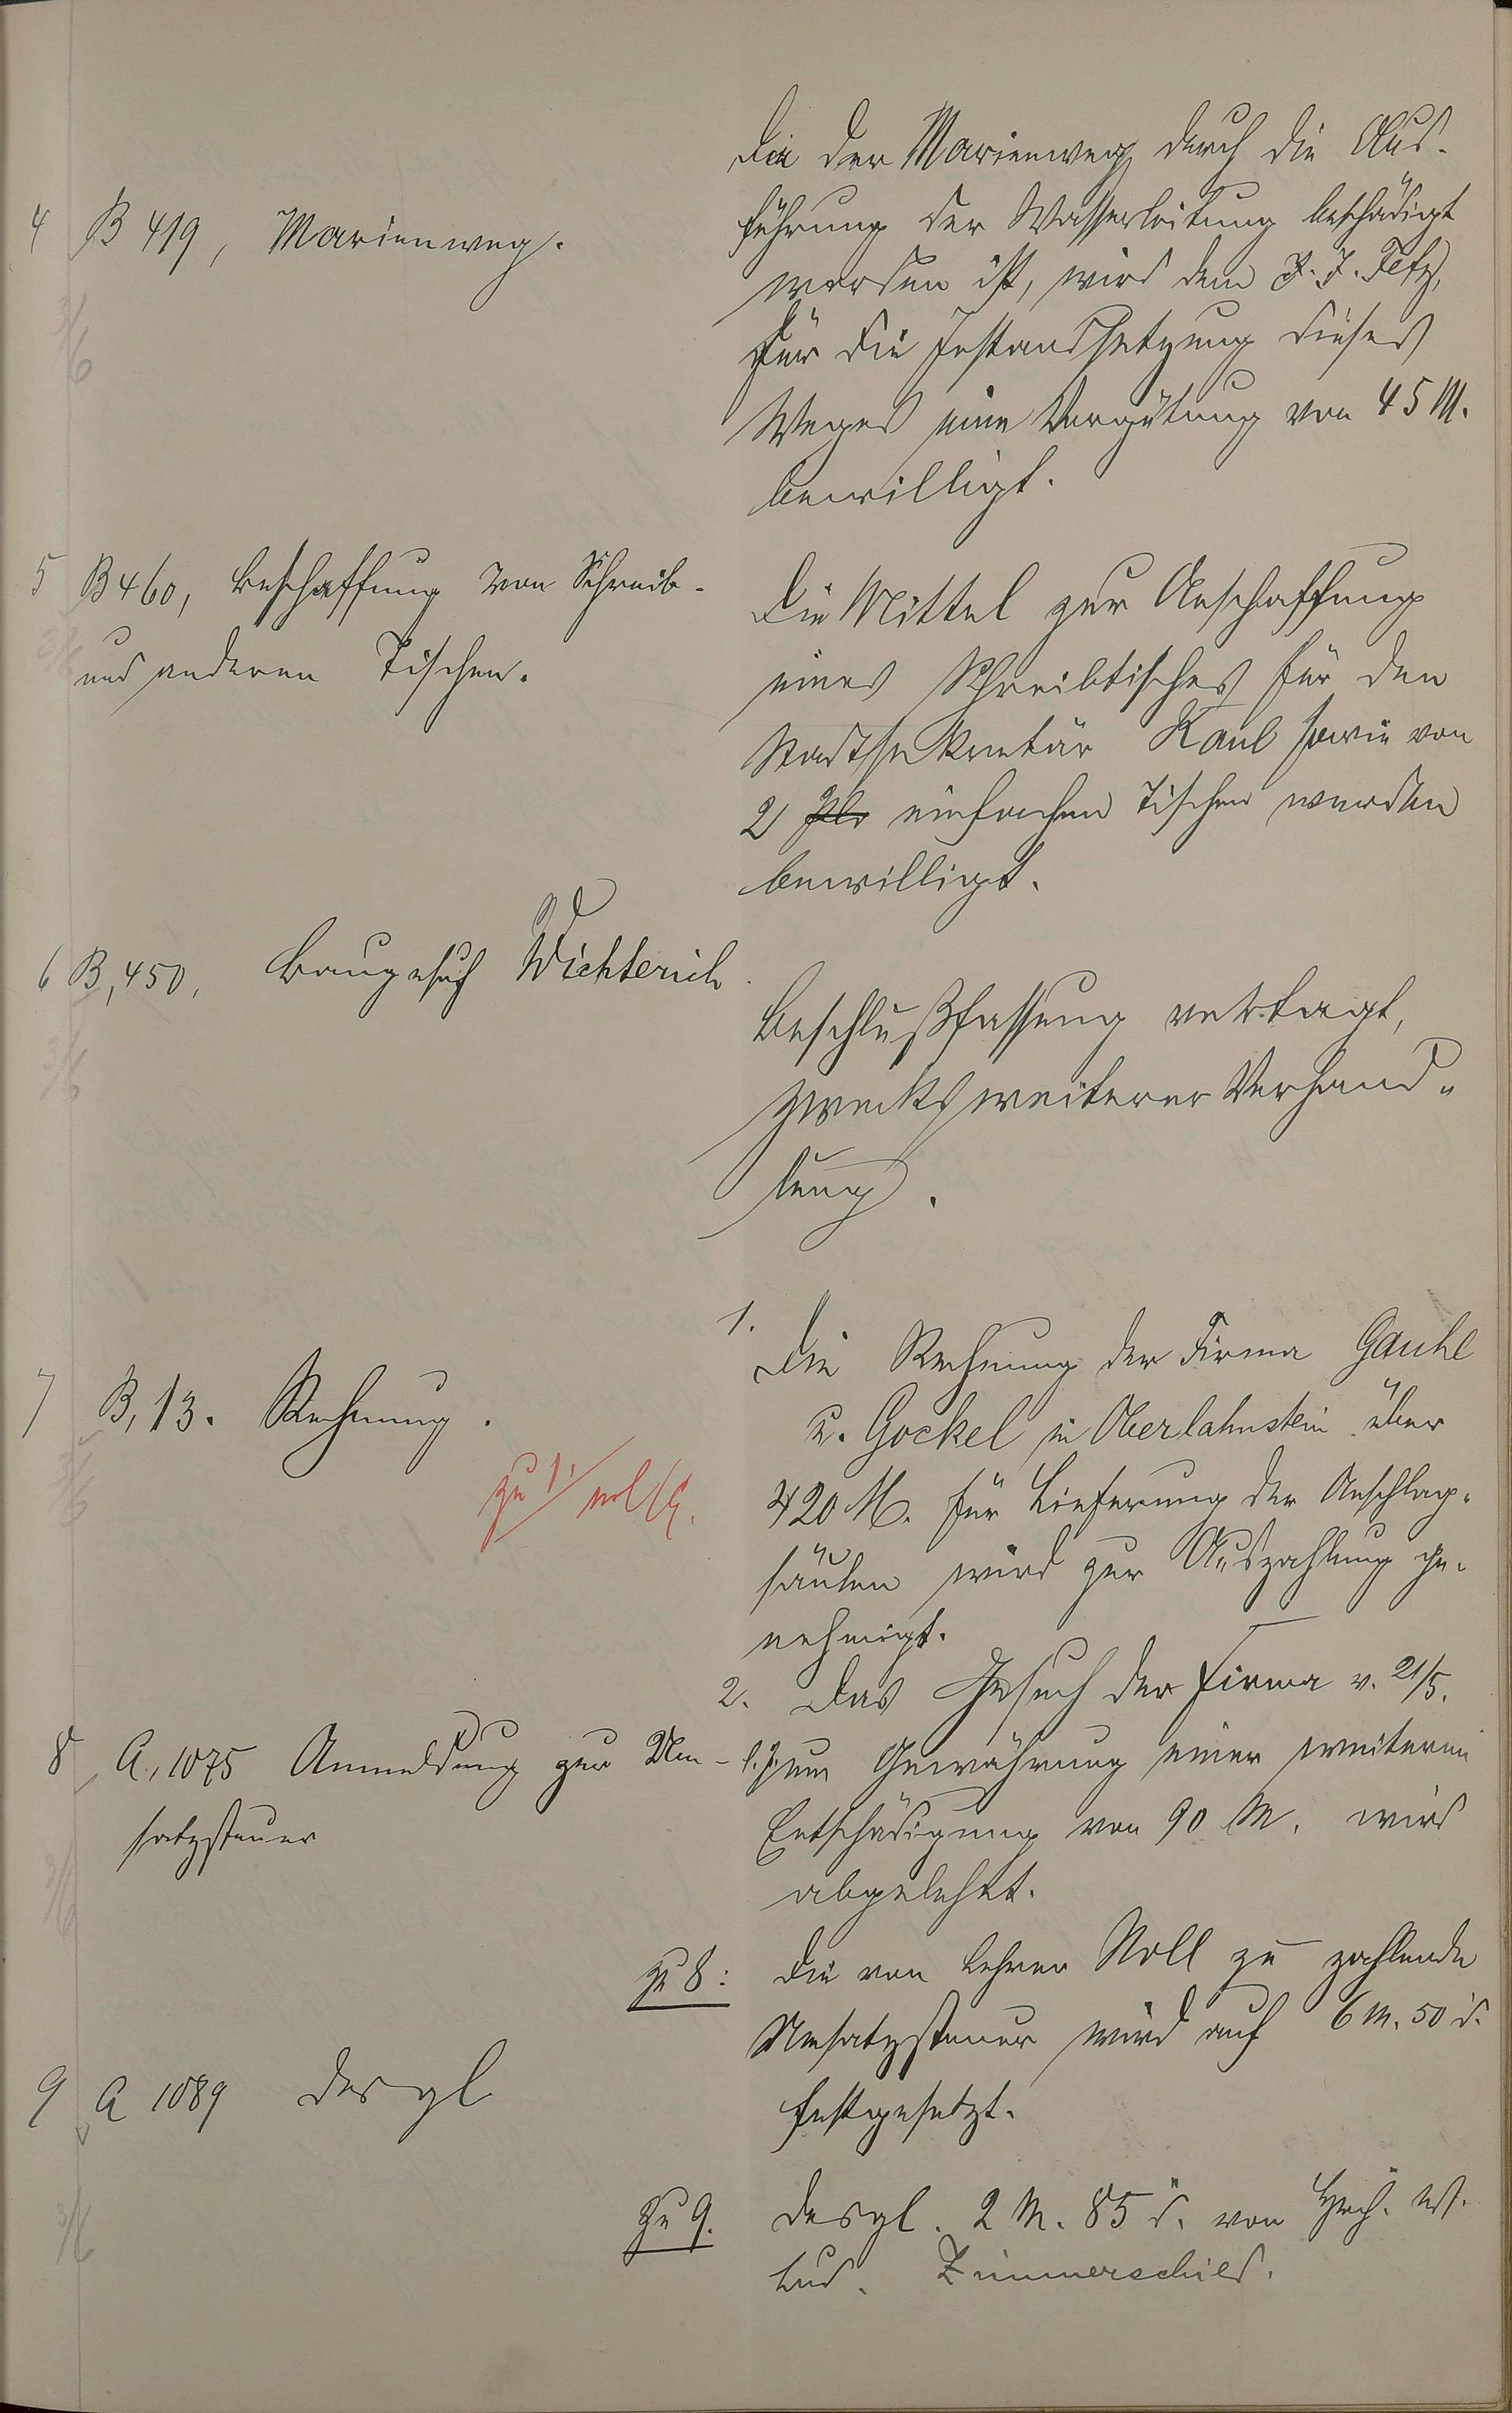 4 B 419, Marienweg.
Da der Marienweg durch die Aus-
führung der Wasserleitung beschädigt
worden ist, wird dem J. J. Fetz,
für die Instandsetzung dieses
Weges eine Vergütung von 45 M.
bewilligt.
5 B 460, Beschaffung von Schreib-
und anderen Tischen.
Die Mittel zur Anschaffung
eines Schreibtisches für den
Stadtsekretär Kaul sowie von
2 einfachen Tischen werden
bewilligt.
6 B, 450, Baugesuch Wichterich
Beschlußfassung vertagt,
zwecks weiterer Verhand-
lung.
7 B, 13. Rechnung.
zu 1.
1. Die Rechnung der Firma Gauhe
u. Gockel in Oberlahnstein über
420 M. für Lieferung der Anschlag-
säulen wird zur Auszahlung ge-
nehmigt.
2. Das Gesuch der Firma v. 21/5.
l. J. um Gewährung einer weiteren
Entschädigung von 90 M. wird
abgelehnt.
8 A, 1075 Anmeldung zur Um-
satzsteuer
zu 8: Die von Lehrer Noll zu zahlende
Umsatzsteuer wird auf 6 M. 50 d.
festgesetzt.
9 A 1089 desgl
zu 9. desgl. 2 M. 85 d. von
Lud. Zimmerschied.
3/6
3/6
3/6
3/6
3/6
3/6